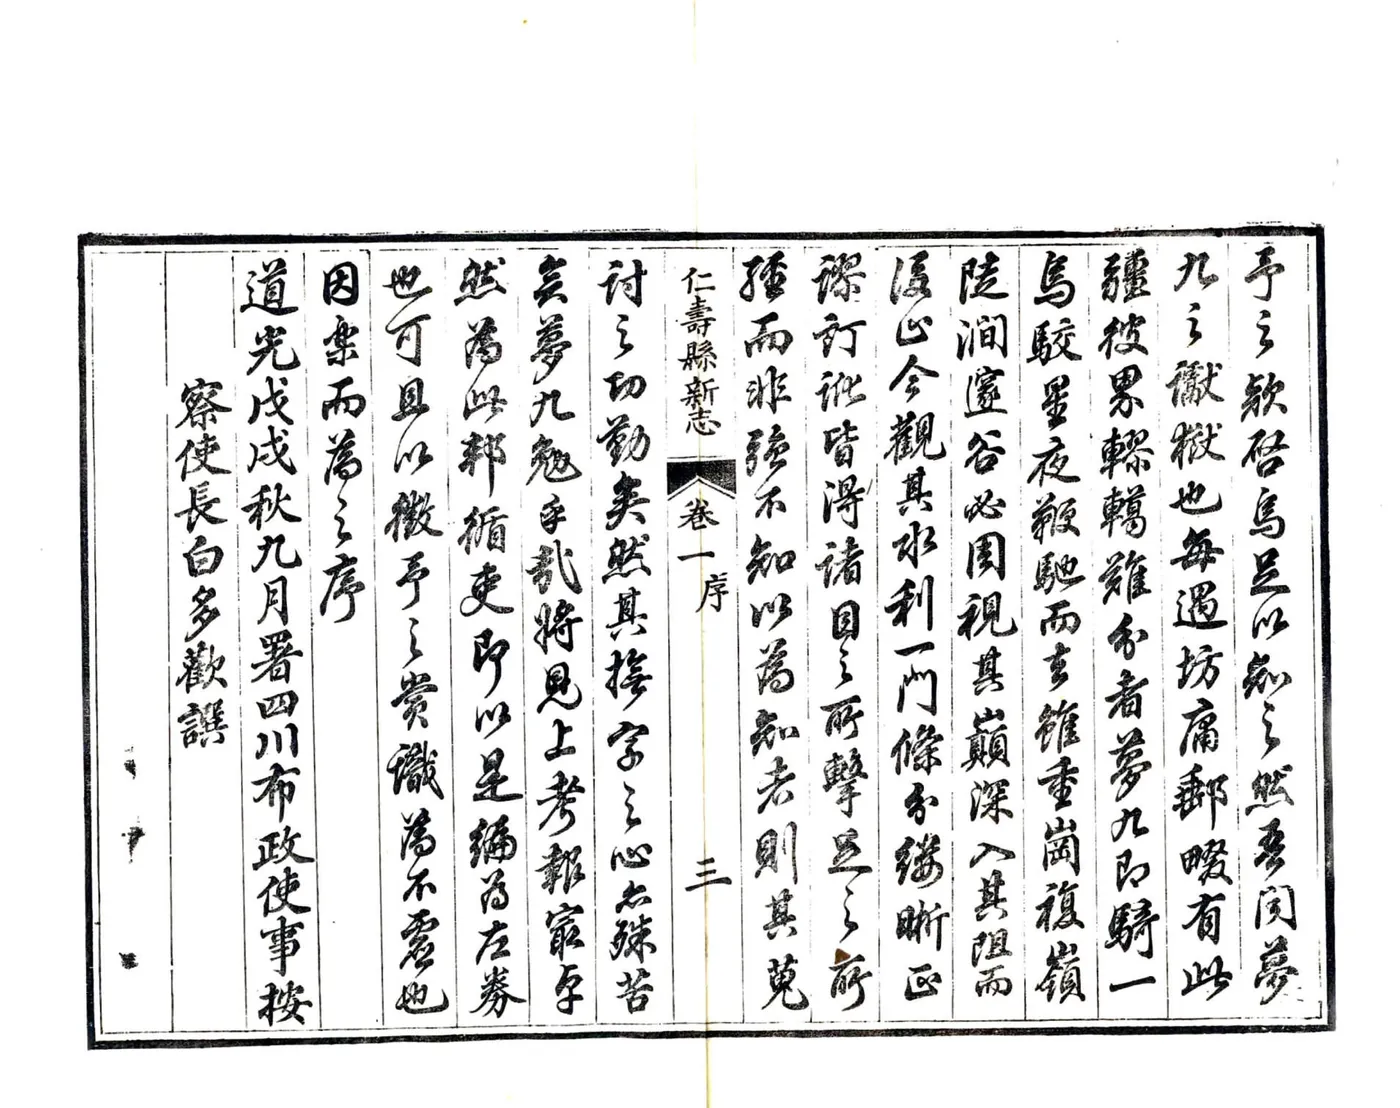 予之款啓烏足以知之然吾聞夢
九之讞獄也每遇坊庸郵畷有此
疆彼界轇轕難分者夢九即騎一
烏駮星夜鞭馳而去雖重崗複嶺
陡澗邃谷必周視其巔深入其阻而
後止今觀其水利一門條分縷晰正
謬訂訛皆得諸目之所擊足之所
經而非強不知以為知者則其蒐
仁壽縣新志 卷一 序 三
討之功勤矣然其撫字之心亦殊苦
矣夢九勉乎哉將見上考報最卓
然為此邦循吏即以是編為左券
也可且以徵予之賞識為不虛也
因樂而為之序
道光戊戌秋九月署四川布政使事按
察使長白多歡譔